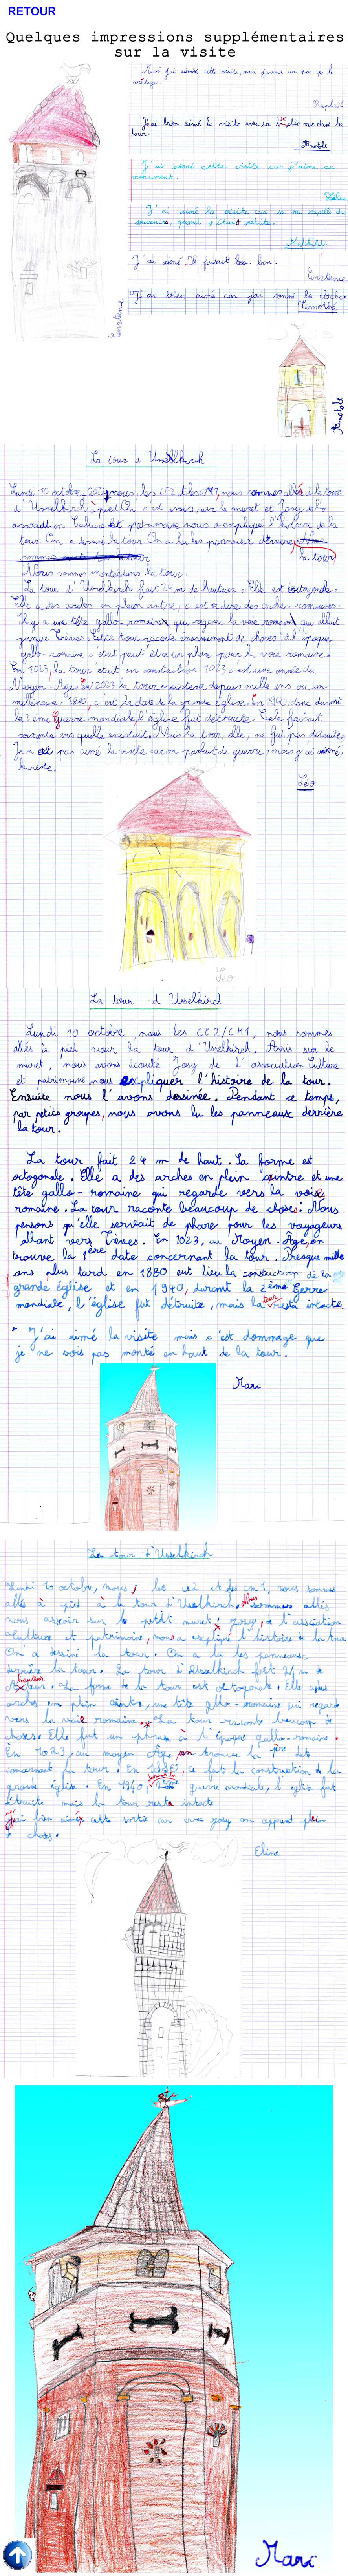 RETOUR
Quelques impressions supplémentaires
sur la visite
Raphaël
J'ai bien aimé la visite avec sa belle vue dans la
tour.
Anatole
J'ai aimé cette visite car j'aime ce
monument.
J'ai aimé la visite car ça me rappelle des
souvenirs, quand j'étais petite.
Mathilde
J'ai aimé. Il faisait bon.
Constance
J'ai bien aimé car j'ai sonné la cloche.
Timothé
Constance
Anatole
La tour d'Usselkirch
Lundi 10 octobre, nous, les CE2 et les CM1, nous sommes allés à la tour
d'Usselkirch à pied. On s'est assis sur le muret et Josy de l'
association Culture et patrimoine nous a expliqué l'histoire de la
tour. On a dessiné la tour. On a lu les panneaux derrière
la tour
Nous sommes montés dans la tour.
La tour d'Usselkirch fait 24 m de hauteur. Elle est octogonale.
Elle a des arches en plein cintre, c'est à dire des arches romaines.
Il y a une tête gallo-romaine qui regarde la voie romaine qui allait
jusque Trèves. Cette tour raconte énormément de choses : à l'époque
gallo-romaine c'était peut être un phare pour la voie romaine.
En 1023, la tour était en construction. 1023 c'est une année du
Moyen-Age. En 2023 la tour existera depuis mille ans ou un
millénaire. 1880, c'est la date de la grande église. En 1940, donc durant
la 2ème guerre mondiale, l'église fut détruite. Cela faisait
soixante ans qu'elle existait. Mais la tour, elle, ne fut pas détruite.
Je n'ai pas aimé la visite car on parlait de guerre, mais j'ai aimé
le reste.
Léo
Léo
La tour d'Usselkirch
Lundi 10 octobre, nous les CE2/CM1, nous sommes
allés à pied voir la tour d'Usselkirch. Assis sur le
muret, nous avons écouté Josy de l'association Culture
et patrimoine nous expliquer l'histoire de la tour.
Ensuite nous l'avons dessinée. Pendant ce temps,
par petits groupes, nous avons lu les panneaux derrière
la tour.
La tour fait 24 m de haut. Sa forme est
octogonale. Elle a des arches en plein cintre et une
tête gallo-romaine qui regarde vers la voie
romaine. La tour raconte beaucoup de choses. Nous
pensons qu'elle servait de phare pour les voyageurs
allant vers Trèves. En 1023, au Moyen-Âge, on
trouve la 1ère date concernant la tour. Presque mille
ans plus tard en 1880 eut lieu la construction de la
grande église et en 1940, durant la 2ème Gerre
mondiale, l'église fut détruite, mais la tour resta intacte.
J'ai aimé la visite mais c'est dommage que
je ne sois pas monté en haut de la tour.
Marc
La tour d'Usselkirch
Lundi 10 octobre, nous, les ce2 et les cm1, nous sommes
allés à pied à la tour d'Usselkirch, sommes allés
nous asseoir sur le petit muret. Josy, de l'association
culture et patrimoine, nous a expliqué l'histoire de la tour.
On a dessiné la tour. On a lu les panneaux
derrière la tour. La tour d'Usselkirch fait 24 m de
hauteur. La forme de la tour est octogonale. Elle a des
arches en plein cintre, une tête gallo-romaine qui regarde
vers la voie romaine. La tour raconte beaucoup de
choses. Elle fut un phare à l'époque gallo-romaine.
En 1023, au moyen Âge, on trouve la 1ère date
concernant la tour. En 1880, ce fut la construction de la
grande église. En 1940, guerre mondiale, l'église fut
détruite mais la tour resta intacte
J'ai bien aimé cette sortie car avec josy on apprend plein
de choses.
Eline
Marc